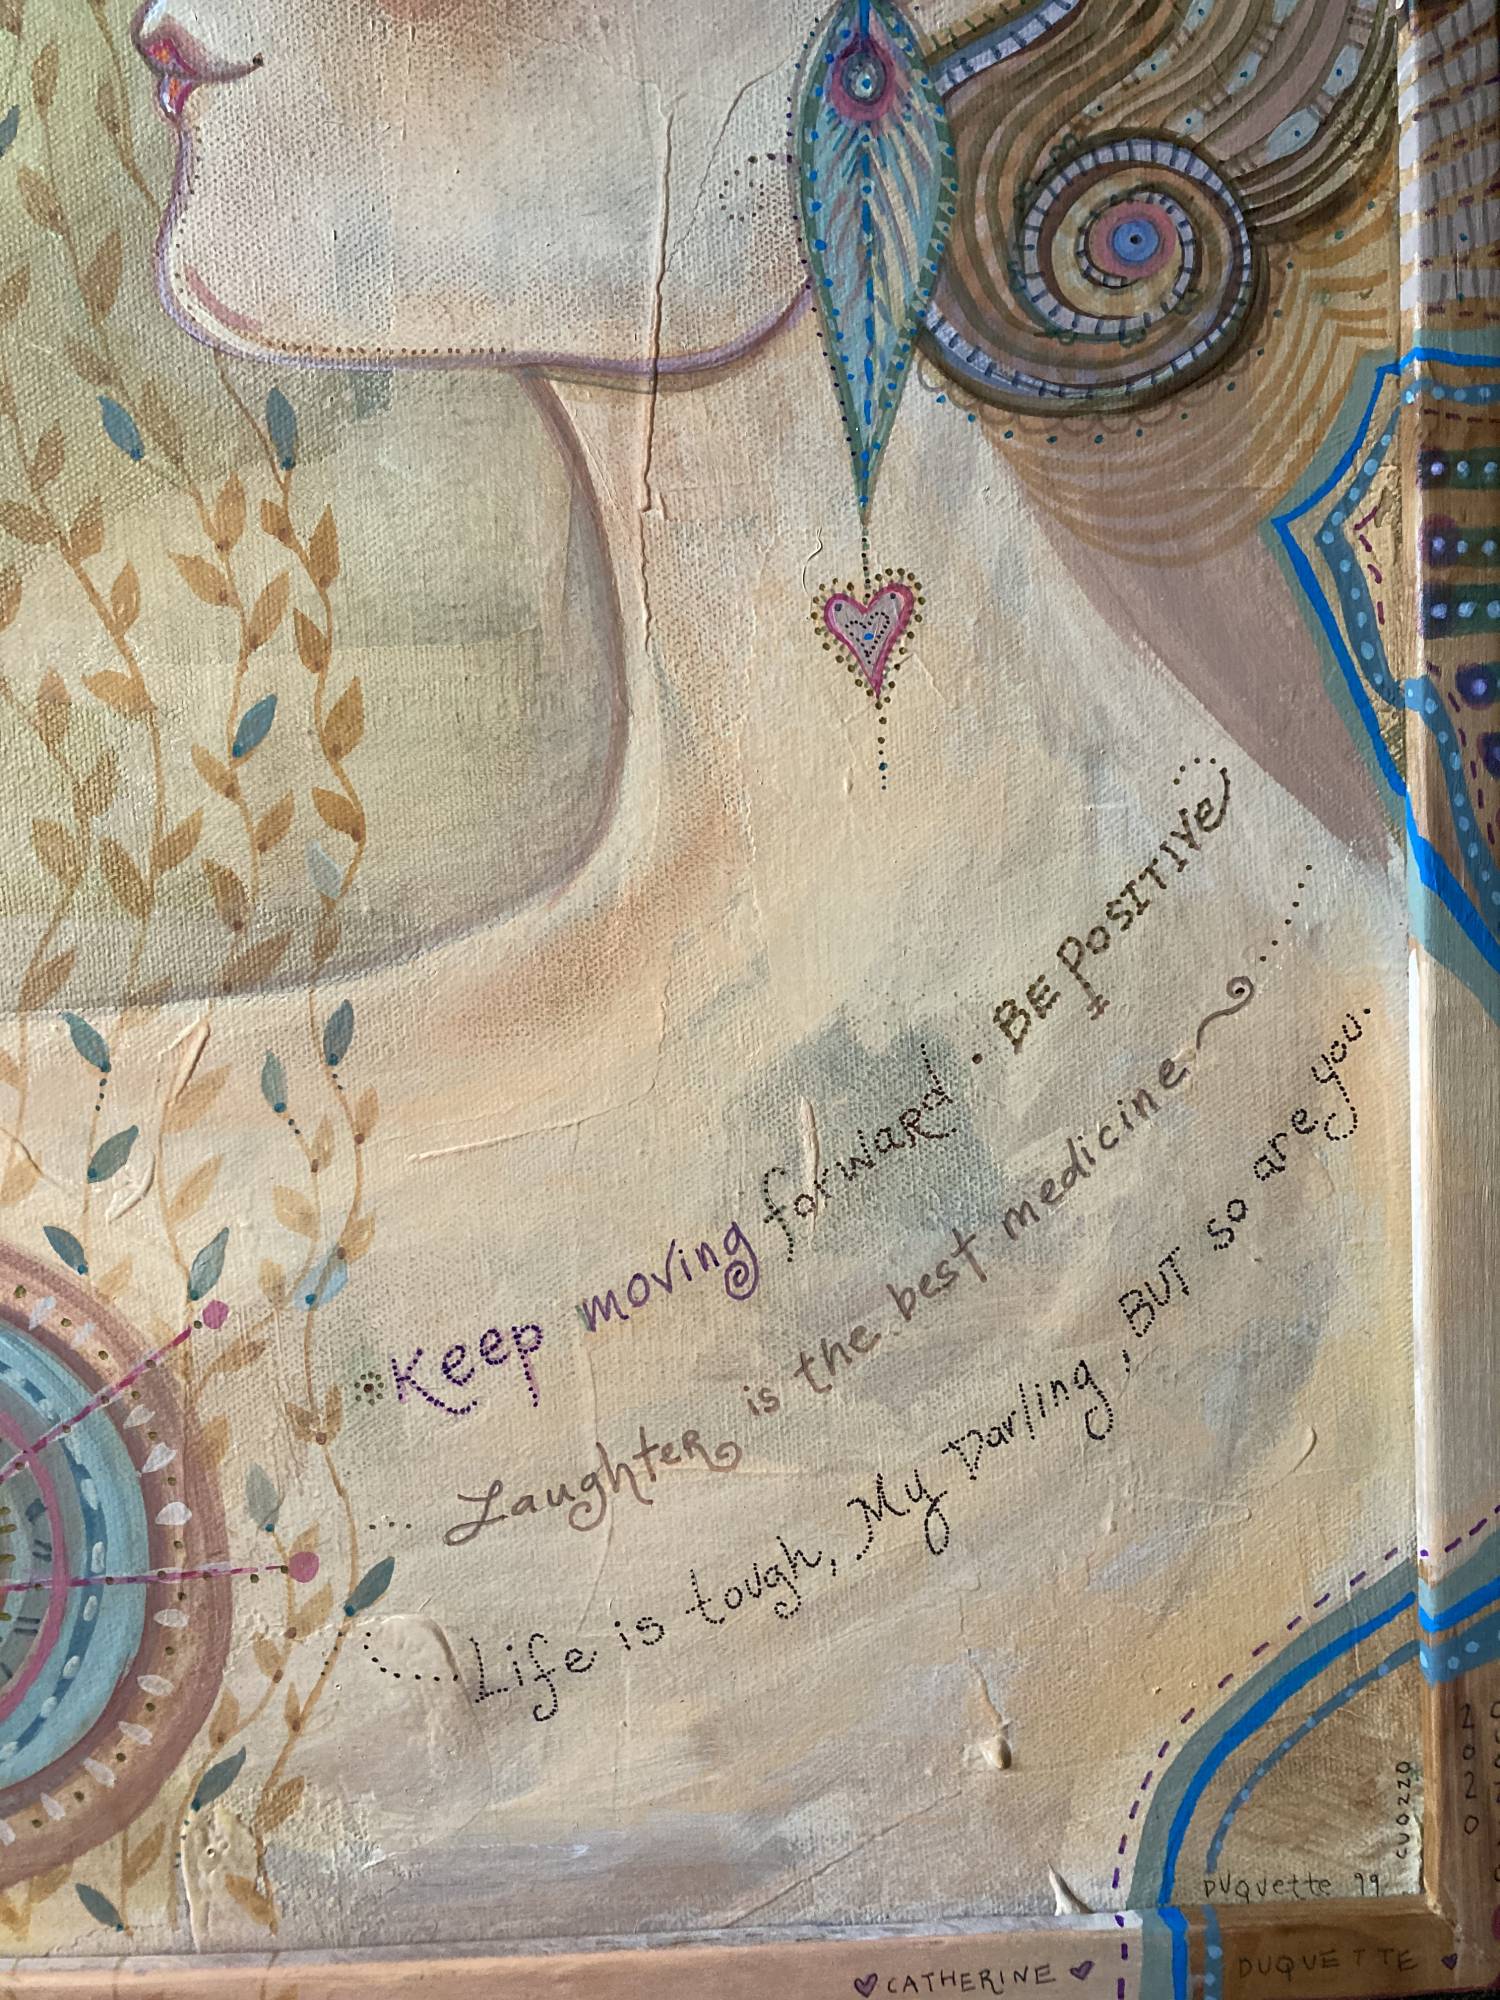 Keep moving forward. BE POSITIVE
Laughter is the best medicine
Life is tough, My Darling, BUT so are you.
CUOZZO
DUQUETTE 99
2020
CATHERINE
DUQUETTE